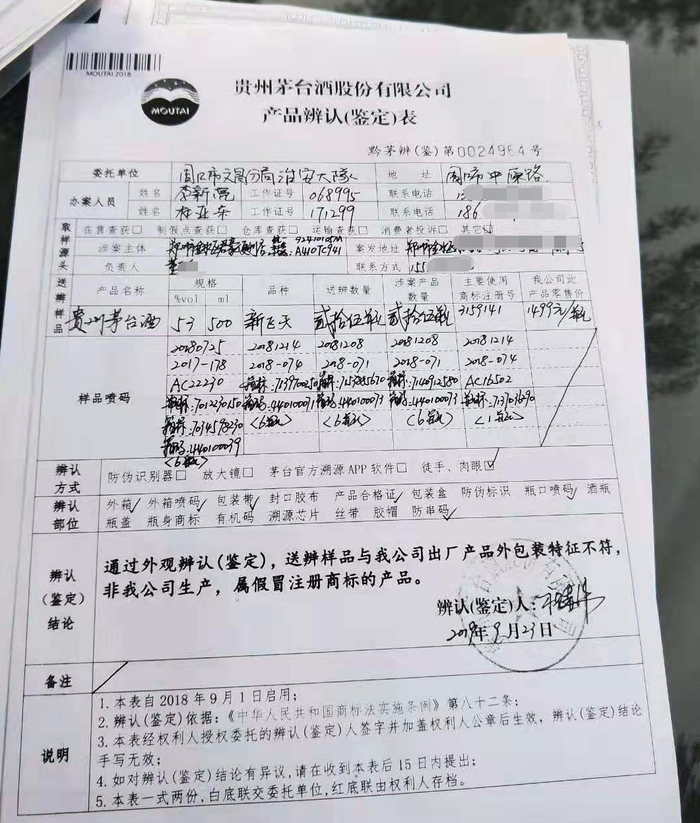 MOUTAI 2018
MOUTAI
贵州茅台酒股份有限公司
产品辨认(鉴定)表
黔茅辨(鉴)第0024984号
委托单位 周口市文昌分局治安大队 地址 周口市中原路
办案人员 姓名 李新亮 工作证号 068995 联系电话
姓名 林亚东 工作证号 171299 联系电话 186
取样源头 在售查获□ 制假点查获□ 仓库查获□ 运输查获□ 消费者投诉□ 其它
涉案主体 案发地址
负责人 联系方式 155
送辨样品 产品名称 规格 %vol ml 品种 送辨数量 涉案产品数量 主要使用商标注册号 我公司此产品零售价
贵州茅台酒 53 500 新飞天 贰拾伍瓶 贰拾伍瓶 3159141 1499元/瓶
样品喷码
20180725 20181214 20181208 20181208 20181214
2017-178 2018-074 2018-071 2018-071 2018-074
AC22230 AC16502
<6瓶> <6瓶> <6瓶> <1瓶>
440100039
<6瓶>
辨认方式 防伪识别器□ 放大镜□ 茅台官方溯源APP软件□ 徒手、肉眼☑
辨认部位 外箱✓ 外箱喷码✓ 包装带✓ 封口胶布 产品合格证✓ 包装盒 防伪标识 瓶口喷码✓ 酒瓶
瓶盖 瓶身商标 有机码 溯源芯片 丝带 胶帽 防串码✓
辨认(鉴定)结论
通过外观辨认(鉴定)，送辨样品与我公司出厂产品外包装特征不符，
非我公司生产，属假冒注册商标的产品。
辨认(鉴定)人：
2019年9月23日
备注
说明
1. 本表自2018年9月1日启用；
2. 辨认(鉴定)依据：《中华人民共和国商标法实施条例》第八十二条；
3. 本表经权利人授权委托的辨认(鉴定)人签字并加盖权利人公章后生效，辨认(鉴定)结论
手写无效；
4. 如对辨认(鉴定)结论有异议，请在收到本表后15日内提出；
5. 本表一式两份，白底联交委托单位，红底联由权利人存档。